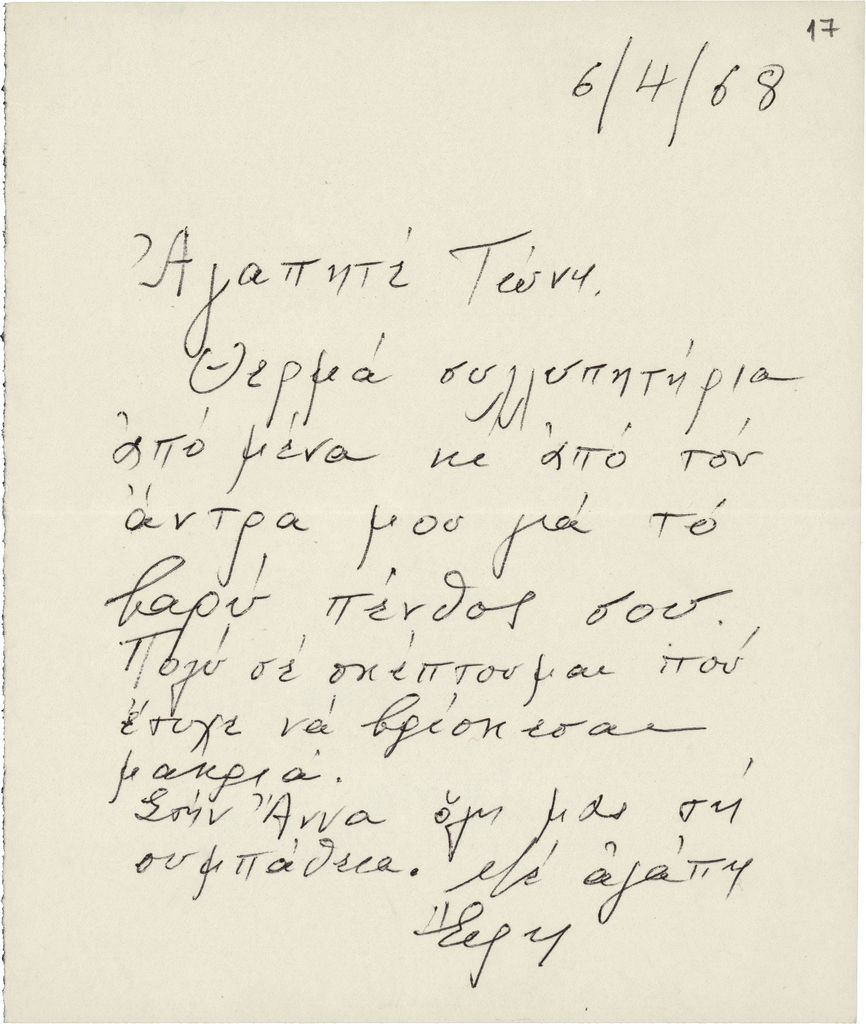 17
6/4/68
Ἀγαπητέ Τώνη.
Θερμά συλλυπητήρια
ἀπό μένα κι ἀπό τόν
ἄντρα μου γιά τό
βαρύ πένθος σου.
Πολύ σέ σκέπτουμαι πού
ἔτυχε νά βρίσκεσαι
μακριά.
Στήν Ἄννα ὅλη μας τή
συμπάθεια. Μέ ἀγάπη
Ἕρη